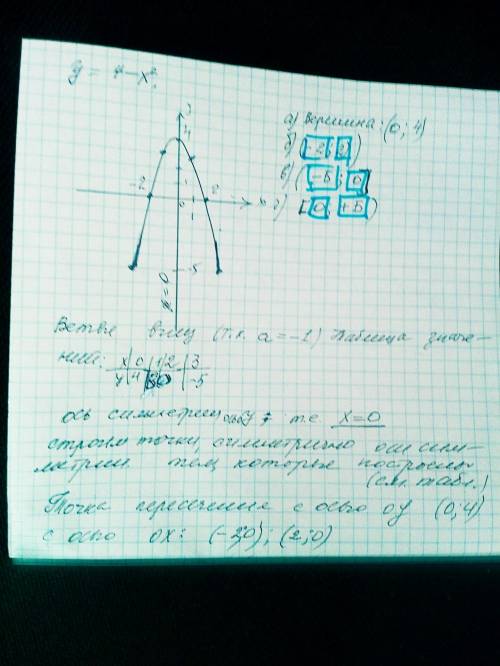 y = 4 - x²
y
4
а) вершина: (0; 4)
б) (-2; 2)
в) (-Б; 0]
г) [0; +Б)
-2
0
2
-5
x = 0
Ветви вниз (т.к. a = -1) Таблица значе-
ний:
x | 0 | 1 | 2 | 3
y | 4 | 3 | 0 | -5
ось симметрии y т.е. x = 0
строим точки, симметрично оси сим-
метрии тем, которые построены
(см. табл.)
Точка пересечения с осью oy (0; 4)
с осью ox: (-2; 0); (2; 0)